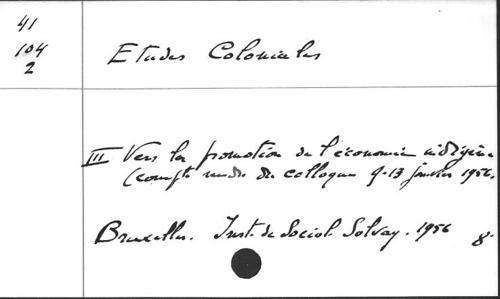 41
104
2
Etudes Coloniales
III Vers la promotion de l'économie indigène
(compte rendu du colloque 9-13 janvier 1956.
Bruxelles. Inst. de Sociol. Solvay. 1956 8°